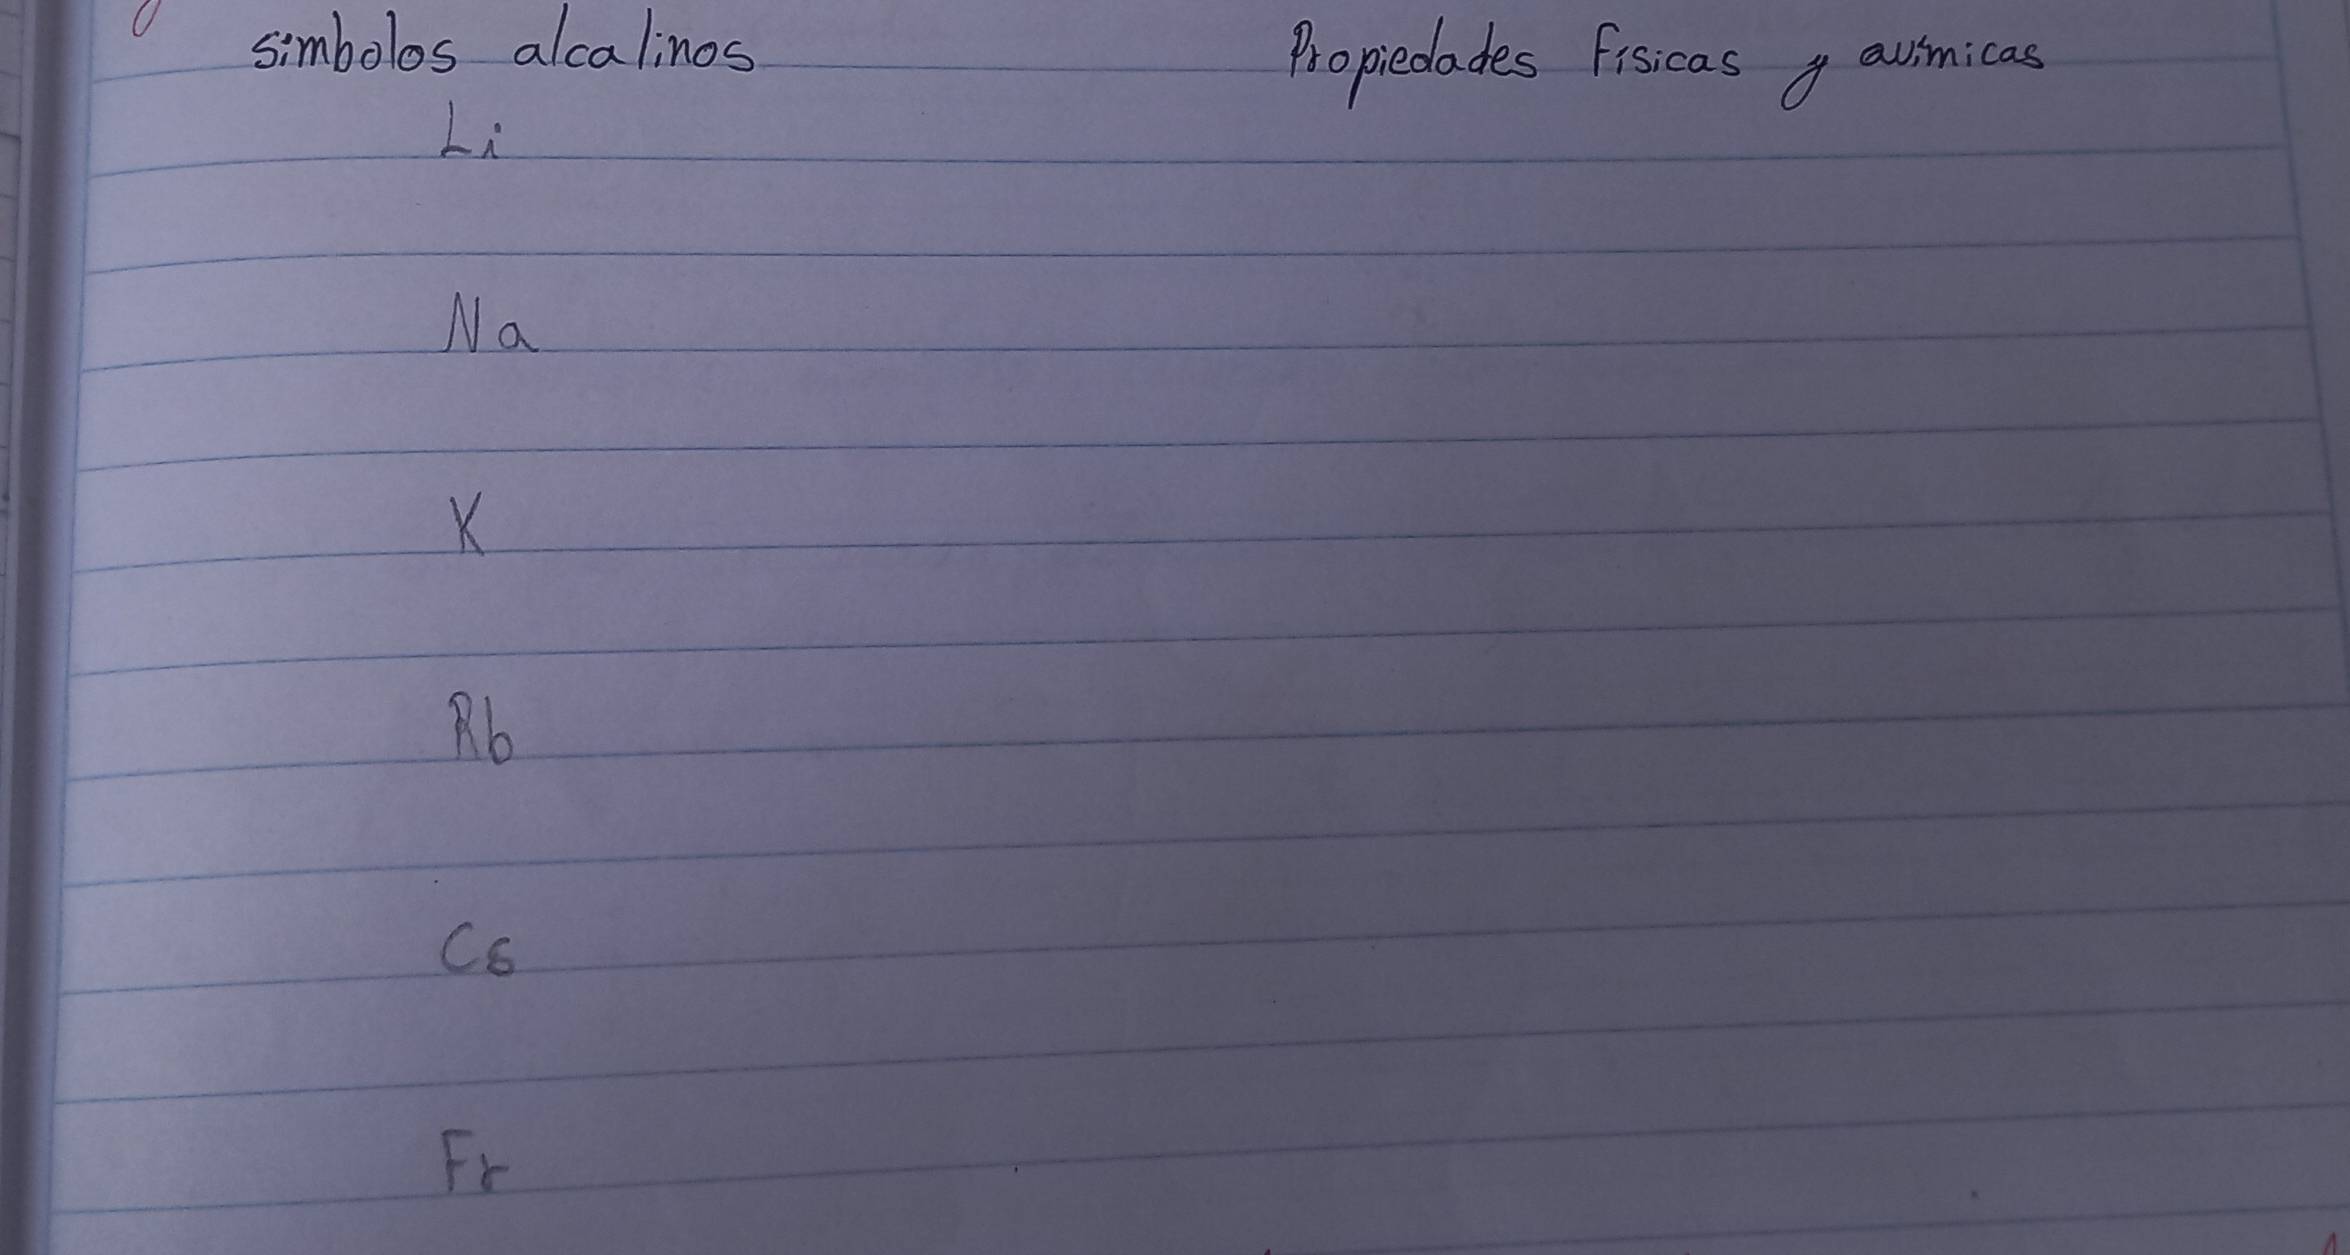 simbolos alcalinos Propiedades Físicas y químicas
Li
Na
K
Rb
Cs
Fr